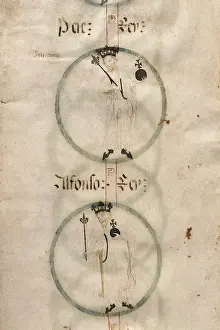 Pere Rey
Alfonso Rey